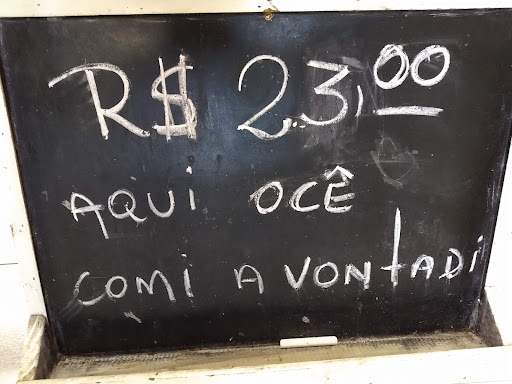 R$ 23,00
AQUI OCÊ
COMI A VONTADI